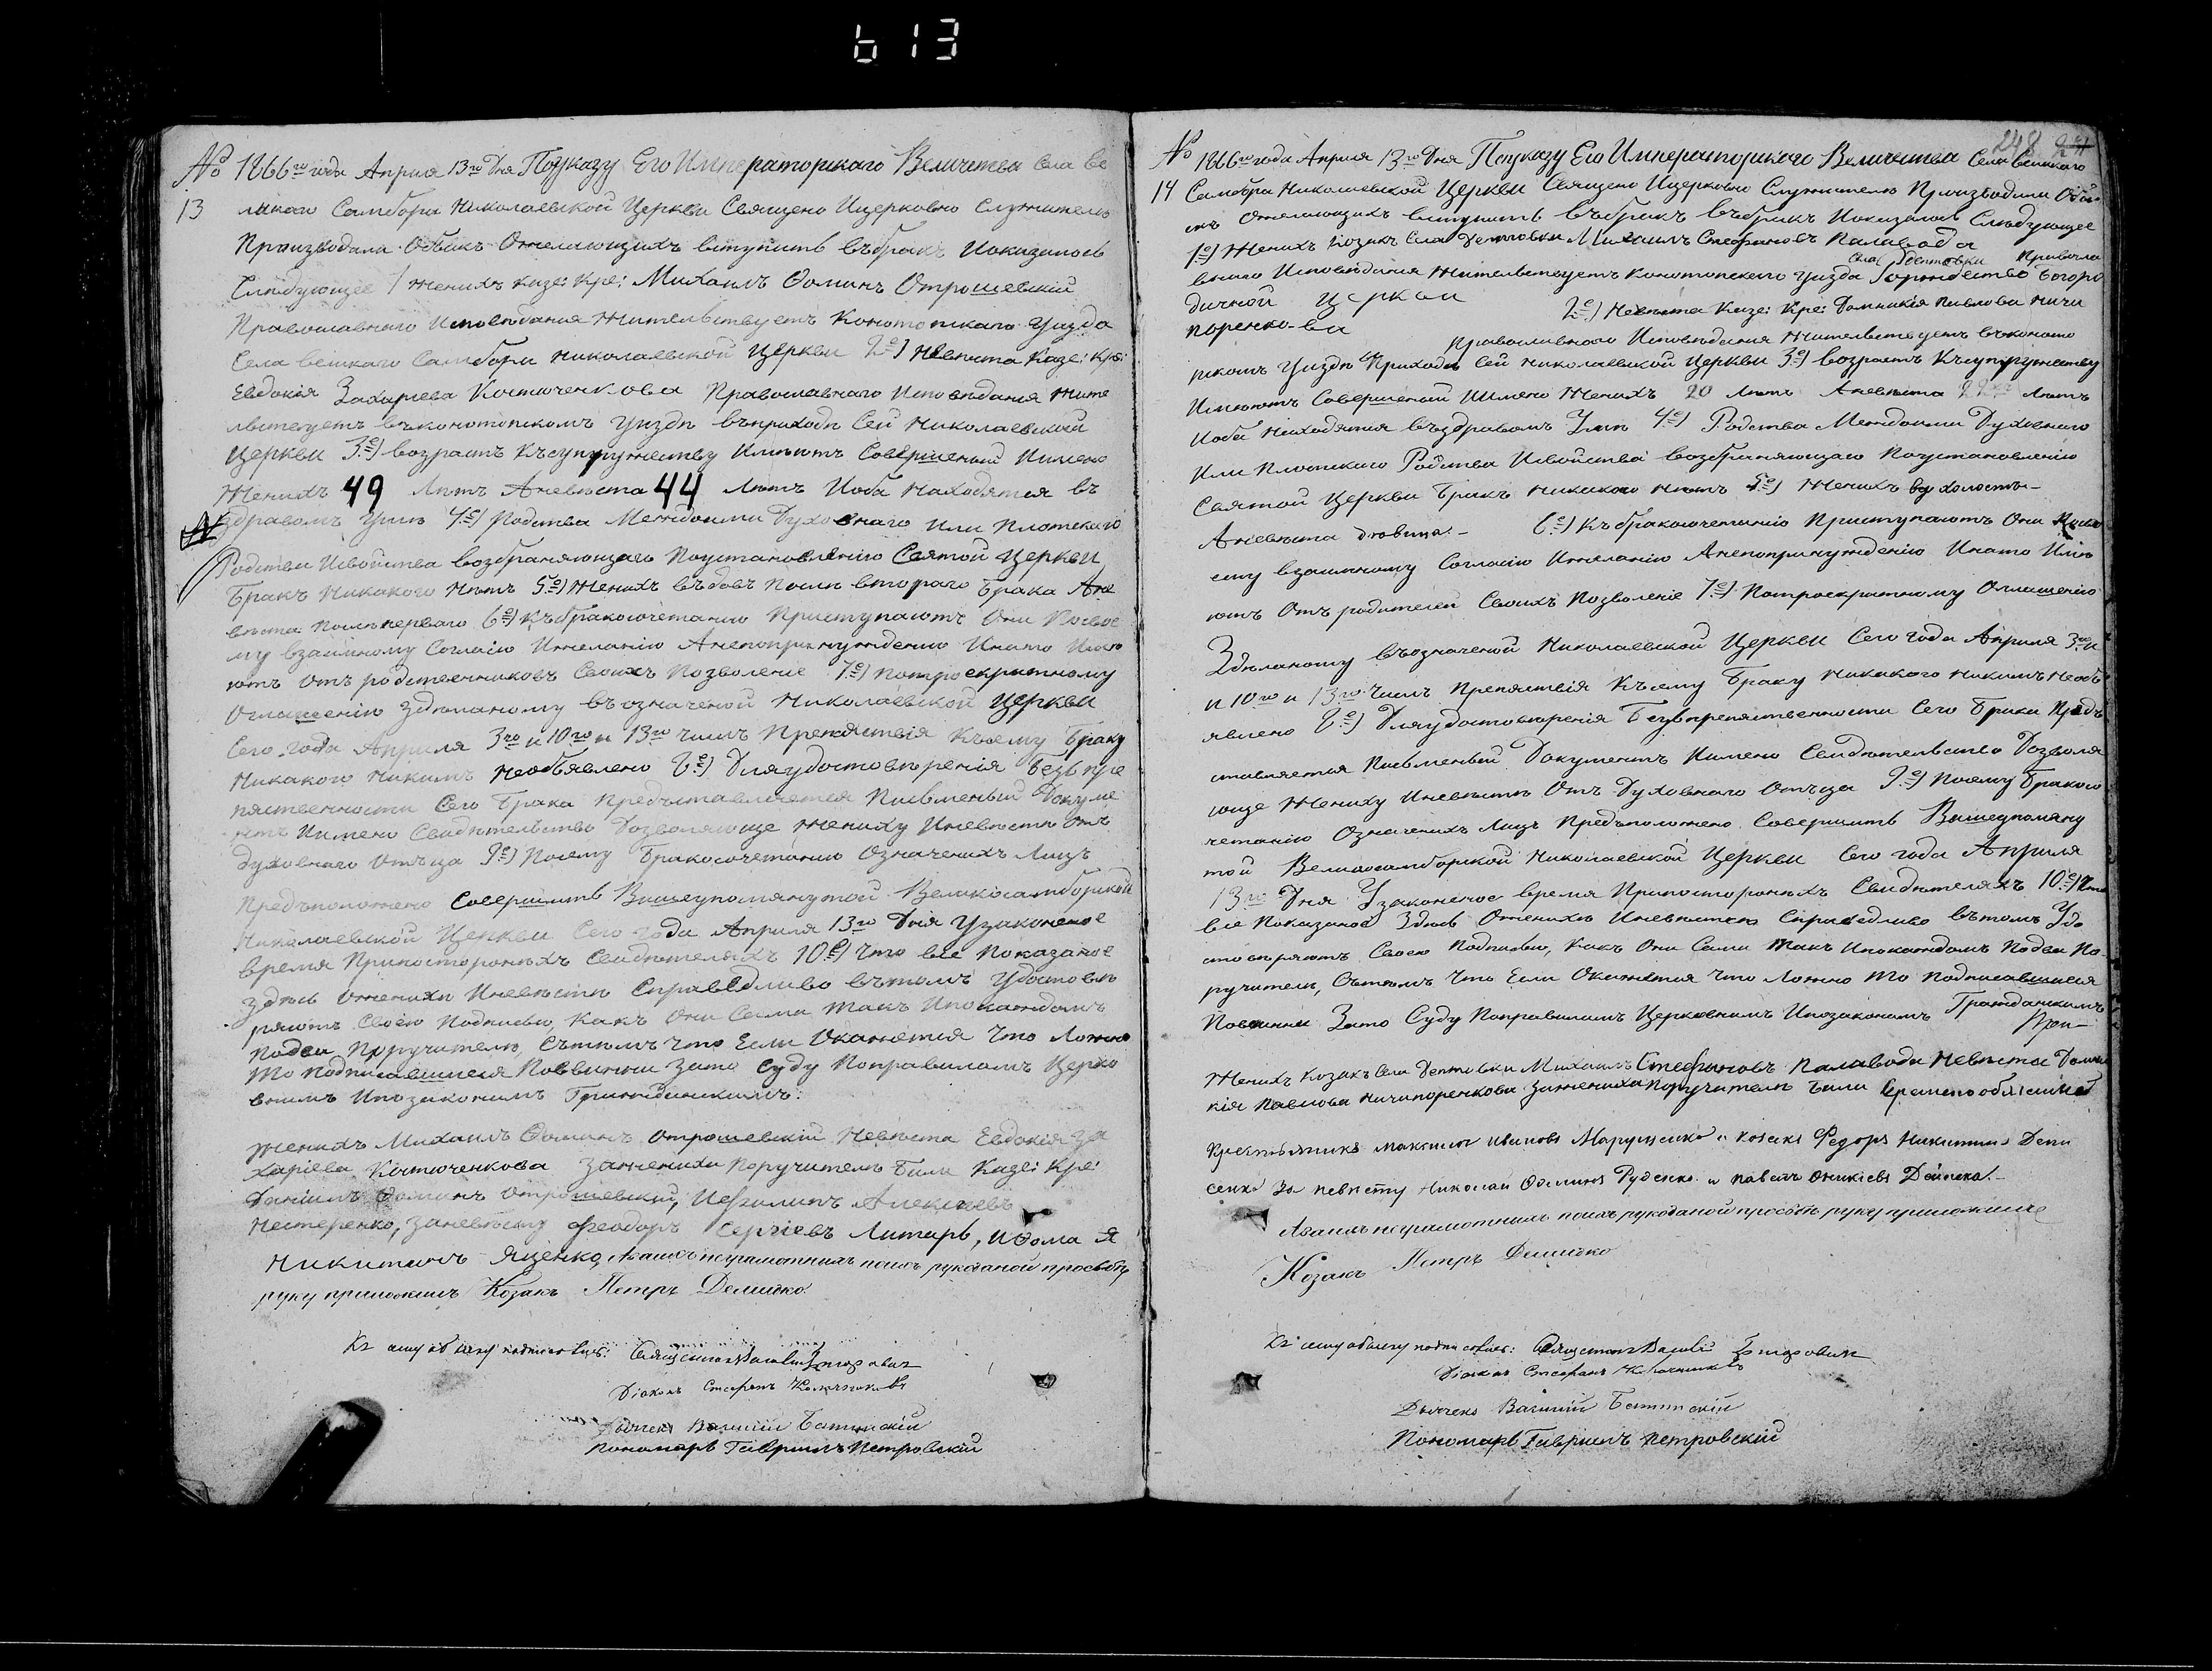 613
№ 1866го года Априля 13го Дня Поуказу Его Императорскаго Величества Села Ве
13 ликаго Самбора Николаевской Церкви Священо Ицерковно Служители
Производила Обыскъ Ожелающихъ вступить въбракъ Иоказалось
Слѣдующее 1 Женихъ казе: кре: Михаилъ Ѳоминъ Отрошевскій
Православнаго Исповѣданія Жительствуетъ Конотопскаго Уизда
Села великаго Самбора Николаевской Церкви 2е) Невѣста Казе: кре:
Евдокія Захаріева Костюченкова Православнаго Исповѣданія Жите
льствуетъ въконотопскомъ Уиздѣ въприходѣ Сей Николаевской
Церкви 3е) возрастъ Късупружеству Имѣютъ Совершеный Иимено
Женихъ 49 Лѣтъ Аневѣста 44 Лѣтъ Иоба Находятся въ
здравомъ Умѣ 4е) Родства Междоими Духовнаго или Плотскаго
Родства Исвойства возбраняющаго Поустановленію Святой Церкви
Бракъ Никакого Нѣтъ 5е) Женихъ въдовъ Послѣ втораго Брака Ане
вѣста послѣперваго 6е) Къбракосочетанію Приступаютъ Они Посвое
му взаимному Согласію Ижеланію Анепопринужденію Инато Имѣ
ютъ Отъ родственниковъ Своихъ Позволеніе 7е) Потроекратному
Оглашенію Здѣланому въозначеной Николаевской Церкви
Сего года Априля 3го и 10го и 13го Числъ Препятствія Къему Браку
Никакого Никимъ Необъявлено 8е) Дляудостовѣренія Безъпре
пятственности Сего Брака Предъставляется Писъменый Докуме
нтъ Иимено Свидѣтельство Дозволяюще Жениху Иневѣсти Отъ
Духовнаго Отъца 9е) Поему Бракосочетанію Означенихъ Лицъ
Предъположено Совершить Вишеупомянутой Великосамборской
Николаевской Церкви Сего года Априля 13го Дня Узаконеное
время Припосторонихъ Свидѣтеляхъ 10е) Что все Показаное
здѣсь Оженихи Иневѣсти Справедливо вътомъ Удостовѣ
ряютъ Своею Подписью, Какъ Они Сами Такъ Ипокаждомъ
Подва Поручителю, Сътѣмъ Что Если Окажется Что Ложно
То Подписавшиеся Повинни Зато Суду Поправиламъ Церко
внимъ Ипозаконимъ Гражданскимъ:
Женихъ Михаилъ Ѳоминъ Отрошевскій Невѣста Евдокія За
харіева Костюченкова Зажениха Поручителѣ Били Казе: Кре:
Даніилъ Ѳоминъ Отрошевскій, Алексіевъ
Нестеренко, Заневѣсту Феодоръ Сергіевъ Литаръ, Иѳома
Никитинъ Яценко, неграмотнихъ поихъ рукоданой просьбѣ
руку приложилъ Козакъ Петръ Демидко
Къ сему обыску подписались: Священникъ Василій
Діаконъ Стефанъ
Дьячекъ Василій
Пономарь Гавриилъ Петровскій
248
№ 1866го года Априля 13го Дня Поуказу Его Императорскаго Величества Села великаго
14 Самбра Николаевской Церкви Священо Ицерковно Служителю Производили Обы
Ожелающихъ вступить въбракъ въбракъ Иоказалось Слѣдующее
1е) Женихъ Козакъ Села Дептовки Михаилъ Стефановъ Палавода
Села Дептовки Правосла
внаго Исповѣданія Жительствуетъ Конотопскаго Уизда Рождество Богоро
дичной Церкви 2е) Невѣста Казе: Кре: Домникія Павлова Ничи
поренко-ва
Православнаго Исповѣданія Жительствуетъ въконото
пскомъ Уиздѣ Приходѣ Сей Николаевской Церкви 3е) возрастъ Късупружеству
Имѣютъ Совершеный Иимено Женихъ 20 Лѣтъ Аневѣста 22 Лѣтъ
Иоба Находятся въздравомъ Умѣ 4е) Родства Междоими Духовнаго
Или Плотскаго Родства Исвойства возбраняющаго Поустановленію
Святой Церкви Бракъ Никакого Нѣтъ 5е) Женихъ холостъ-
Аневѣста дѣвица.- 6е) Къбракосочетанію Приступаютъ Они Посво
ему взаимному Согласію Ижеланію Анепопринужденію Инато Имѣ
ютъ Отъ родителей Своихъ Позволеніе 7е) Потроекратному Оглашенію
Здѣланому въозначеной Николаевской Церкви Сего года Априля 3го и
и 10го и 13го Числъ Препятствія Къему Браку Никакого Никимъ Необъ
явлено 8е) Дляудостовѣренія Безъпрепятственности Сего Брака Предъ
ставляется Писъменый Документъ Иимено Свидѣтельство Дозволя
юще Жениху Иневѣсти Отъ Духовнаго Отъца 9е) Поему Бракосо
четанію Означенихъ Лицъ Предъположено Совершить Вишеупомяну
той Великосамборской Николаевской Церкви Сего года Априля
13го Дня Узаконеное время Припосторонихъ Свидѣтеляхъ 10е) Что
все Показаное Здѣсь Оженихѣ Иневѣстѣ Справедливо вътомъ Удо
стовѣряютъ Своею Подписью, Какъ Они Сами Такъ Ипокаждомъ Подва По
ручителя, Сътѣмъ Что Если Окажется Что Ложно То Подписавшиеся
Повинни Зато Суду Поправиламъ Церковнимъ Ипозаконамъ Гражданскимъ
Женихъ Козакъ Села Дептовки Михаилъ Стефановъ Палавода Невѣста Домни
кія Павлова Ничипоренкова Зажениха Поручителѣ Били временообязаные
Крестьянинъ Максимъ Ивановъ Марущенко и козакъ Федоръ Никитинъ Дени
сенко За невѣсту Николай Ѳоминъ Руденко и павелъ Оникіевъ Дейнека.-
неграмотнимъ поихъ рукоданой просьбѣ руку приложилъ
Козакъ Петръ Демидко
Къ сему обыску подписались: Священникъ Василій
Діаконъ Стефанъ
Дьячекъ Василій
Пономарь Гавриилъ Петровскій